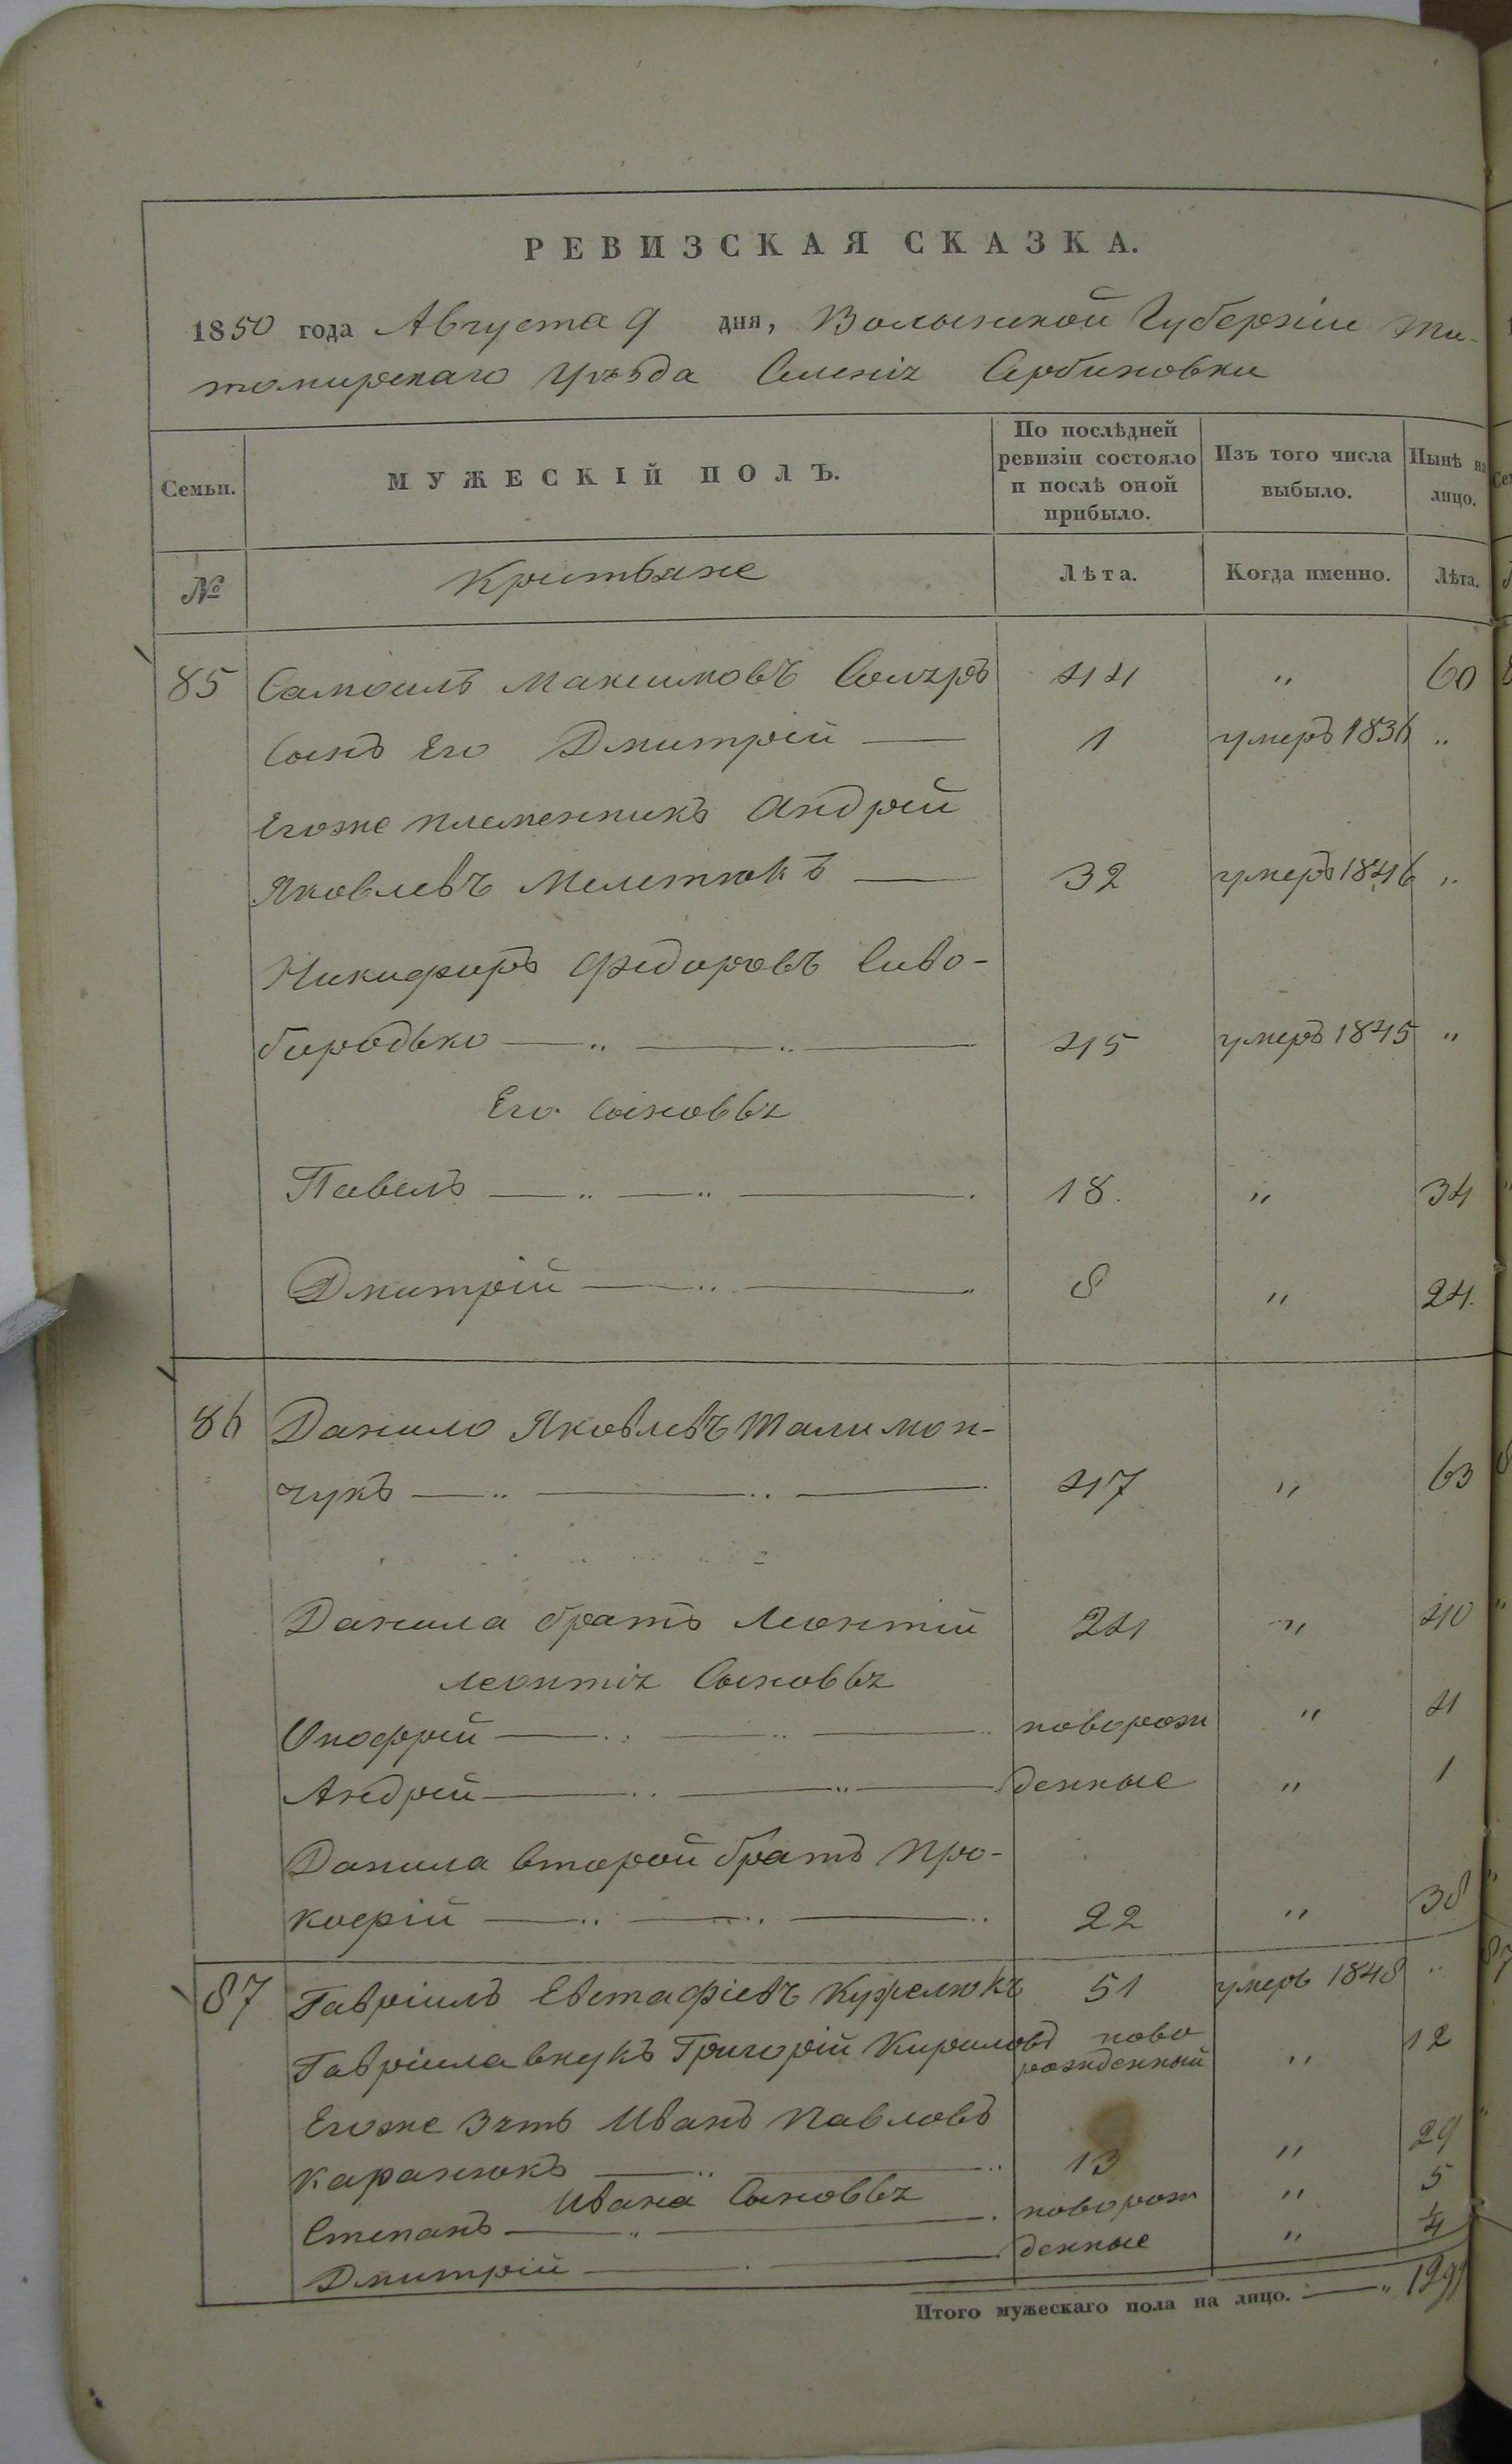 РЕВИЗСКАЯ СКАЗКА.
1850 года Августа 9 дня, Волынской Губерніи Жи-
томирскаго Уѣзда Селенія Сербиновки
Семьи. МУЖЕСКІЙ ПОЛЪ. По послѣдней ревизіи состояло и послѣ оной прибыло. Изъ того числа выбыло. Нынѣ на лицо.
№ Крестьяне Лѣта. Когда именно. Лѣта.
85 Самоилъ Максимовъ 44 " 60
Сынъ Его Дмитрій — 1 умеръ 1836 "
Егоже племенникъ Андрей
Яковлевъ Мелетюкъ — 32 умеръ 1846 "
Никифоръ Федоровъ Сиво-
бородько — " — " — 45 умеръ 1845 "
Его Сыновья
Павелъ — " — " — 18. " 34
Дмитрій — " — 8 " 24.
86 Данило Яковлевъ Талимон-
чукъ — " — " — 47 " 63
Данила братъ Леонтій 24 " 40
Леонтія Сыновья
Онофрей — " — " — новорож " 4
Андрей — " — " — денные " 1
Данила второй братъ Про-
кофій — " — " — " 22 " 38
87 Гавріилъ Евстафіевъ 51 умеръ 1848 "
Гавріила внукъ Григорій Кириловъ ново рожденный " 12
Егоже Зять Иванъ Павловъ
Каранюкъ — " — " 13 " 29
Ивана Сыновья
Степанъ — " — новорож " 5
Дмитрій — — денные " 1/4
Итого мужескаго пола на лицо. — "